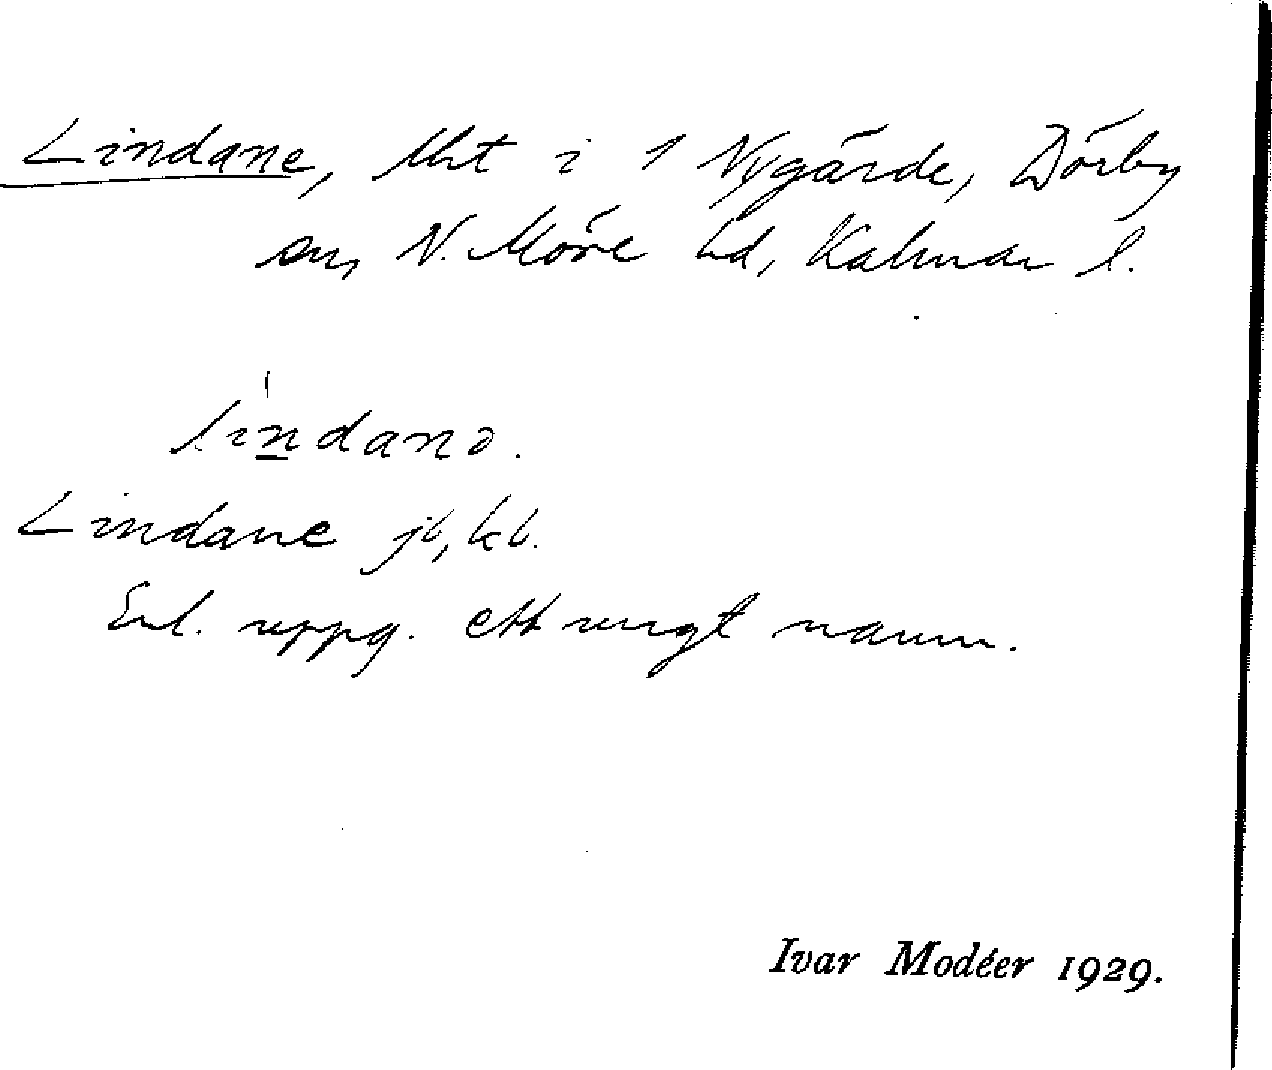 Lindane, lht i 1 Nygärde, Dörby
sn, N. Möre hd, Kalmar l.
lìndanə.
Lindane jb, kb.
Enl. uppg. ett ungt namn.
Ivar Modéer 1929.